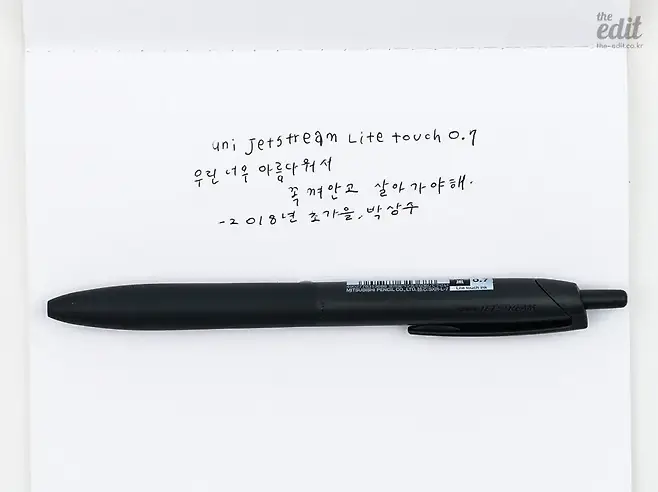 the
edit
the-edit.co.kr
uni Jetstream Lite touch 0.7
우린 너무 아름다워서
꼭 껴안고 살아가야해.
-2018년 초가을, 박상수
MITSUBISHI PENCIL CO., LTD.
0.7
Lite touch ink
JETSTREAM